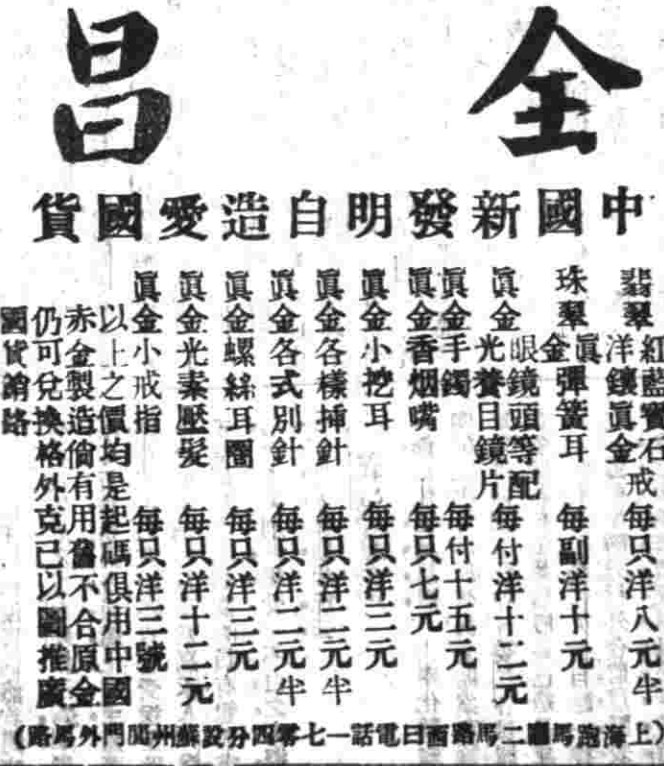 全昌
中國新發明自造愛國貨
翡翠紅藍寶石戒洋鑲眞金每只洋八元
珠翠眞金彈簧耳每副洋十元
眞金眼鏡頭等配光養目鏡片每付洋十二元
眞金手鐲每付十五元
眞金香烟嘴每只七元
眞金小挖耳每只洋三元
眞金各樣揷針每只洋二元半
眞金各式別針每只洋二元半
眞金螺絲耳圈每只洋三元
眞金光素壓髮每只洋十二元
眞金小戒指每只洋三號
以上之價均是起碼俱用中國
赤金製造倘有用舊不合原金
仍可兌換格外克己以圖推廣
國貨銷路
(上海跑馬廳二馬路西口電話一七零四分設蘇州閶門外馬路)